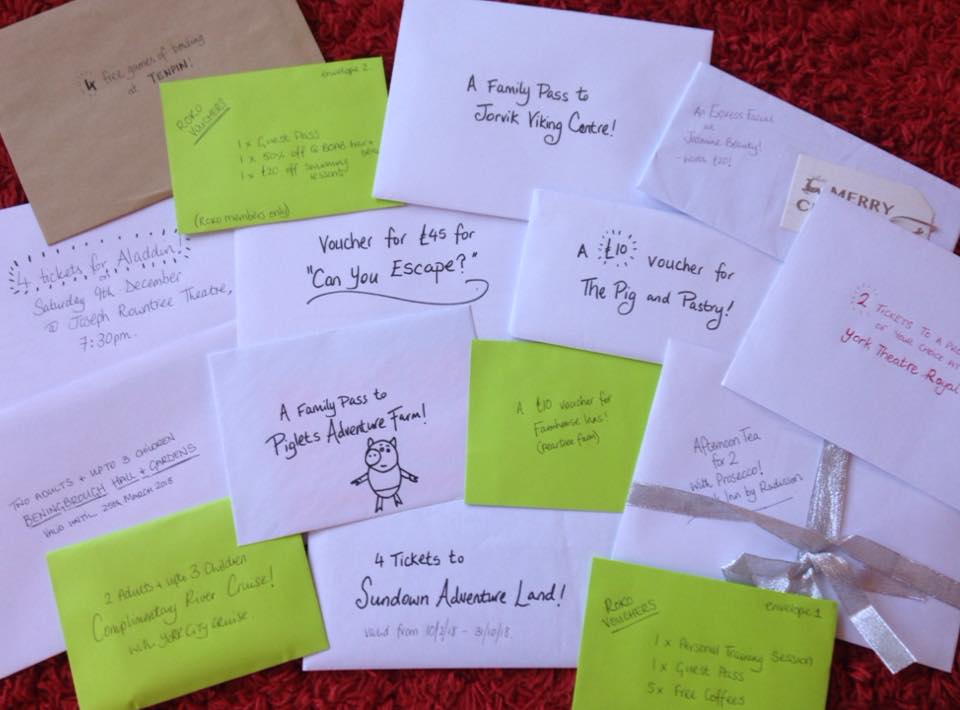 4 free games of bowling
at TENPIN!
envelope 2
ROKO
VOUCHERS
1 x Guest Pass
1 x 50% off
1 x £20 off swimming
lessons
(ROKO members only)
A Family Pass to
Jorvik Viking Centre!
An Express Facial
at
Jasmine Beauty!
- worth £20!
MERRY
4 tickets for Aladdin!
on
Saturday 9th December
@ Joseph Rowntree Theatre,
7:30pm.
Voucher for £45 for
"Can You Escape?"
A £10 voucher for
The Pig and Pastry!
2 TICKETS TO A
OF YOUR CHOICE AT
York Theatre Royal
TWO ADULTS + UPTO 3 CHILDREN
BENINGBROUGH HALL + GARDENS
VALID UNTIL 25th MARCH 2018
A Family Pass to
Piglets Adventure Farm!
A £10 voucher for
Farmhouse Inns!
(peartree farm)
Afternoon Tea
for 2
with Prosecco!
Inn by Radisson
2 Adults + upto 3 Children
Complimentary River Cruise!
with York City Cruise.
4 Tickets to
Sundown Adventure Land!
valid from 10/2/18 - 31/10/18.
ROKO
VOUCHERS
envelope 1
1 x Personal Training Session
1 x Guest Pass
5x Free Coffees